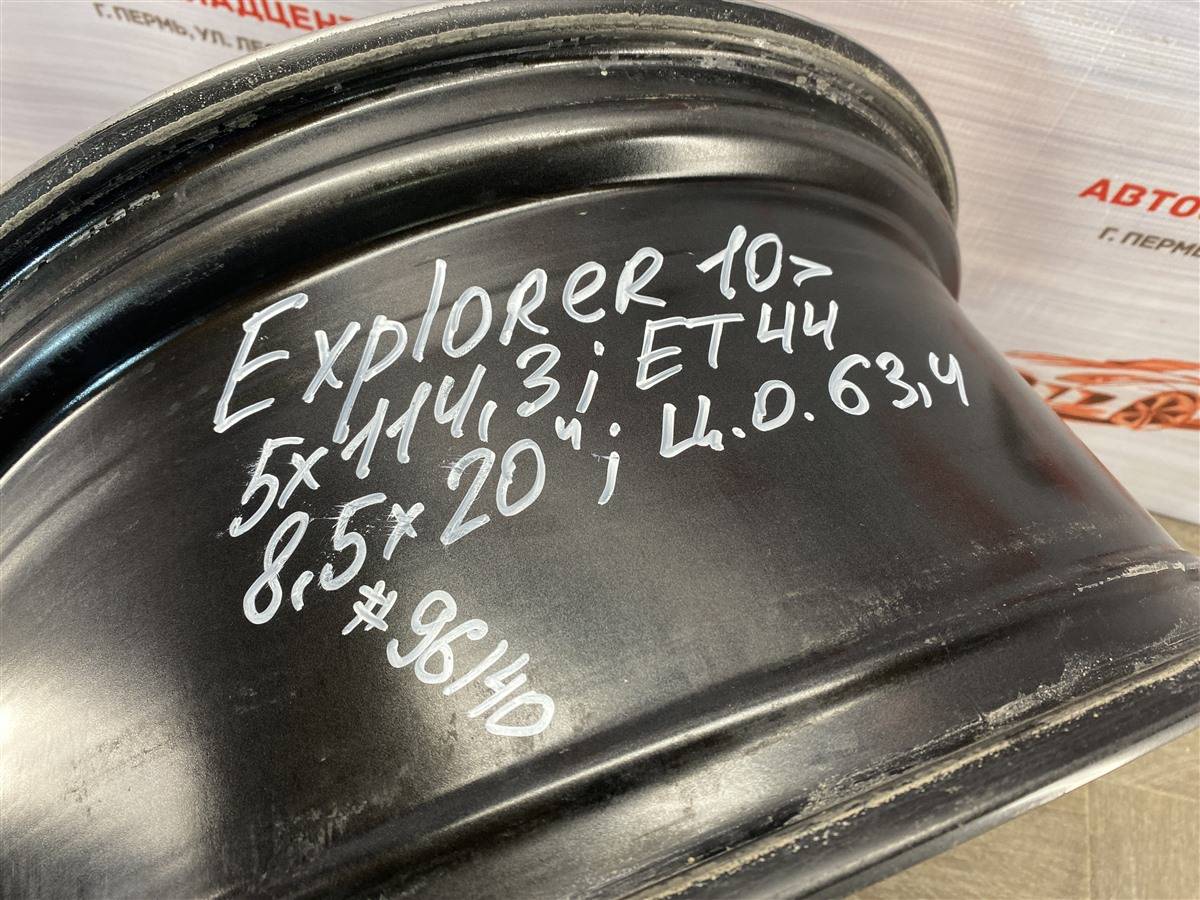 ЛАДЦЕНТ
Г. ПЕРМЬ, УЛ. ЛЕ
АВТО
Г. ПЕРМЬ
Explorer 10>
5x114,3; ET 44
8,5x20"; Ц.О. 63,4
#96140